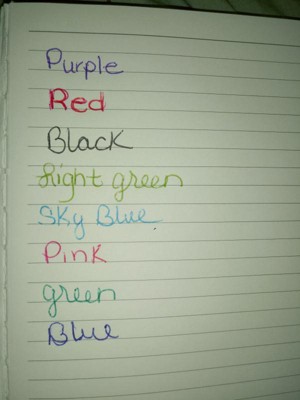 Purple
Red
Black
Light green
Sky Blue
Pink
green
Blue